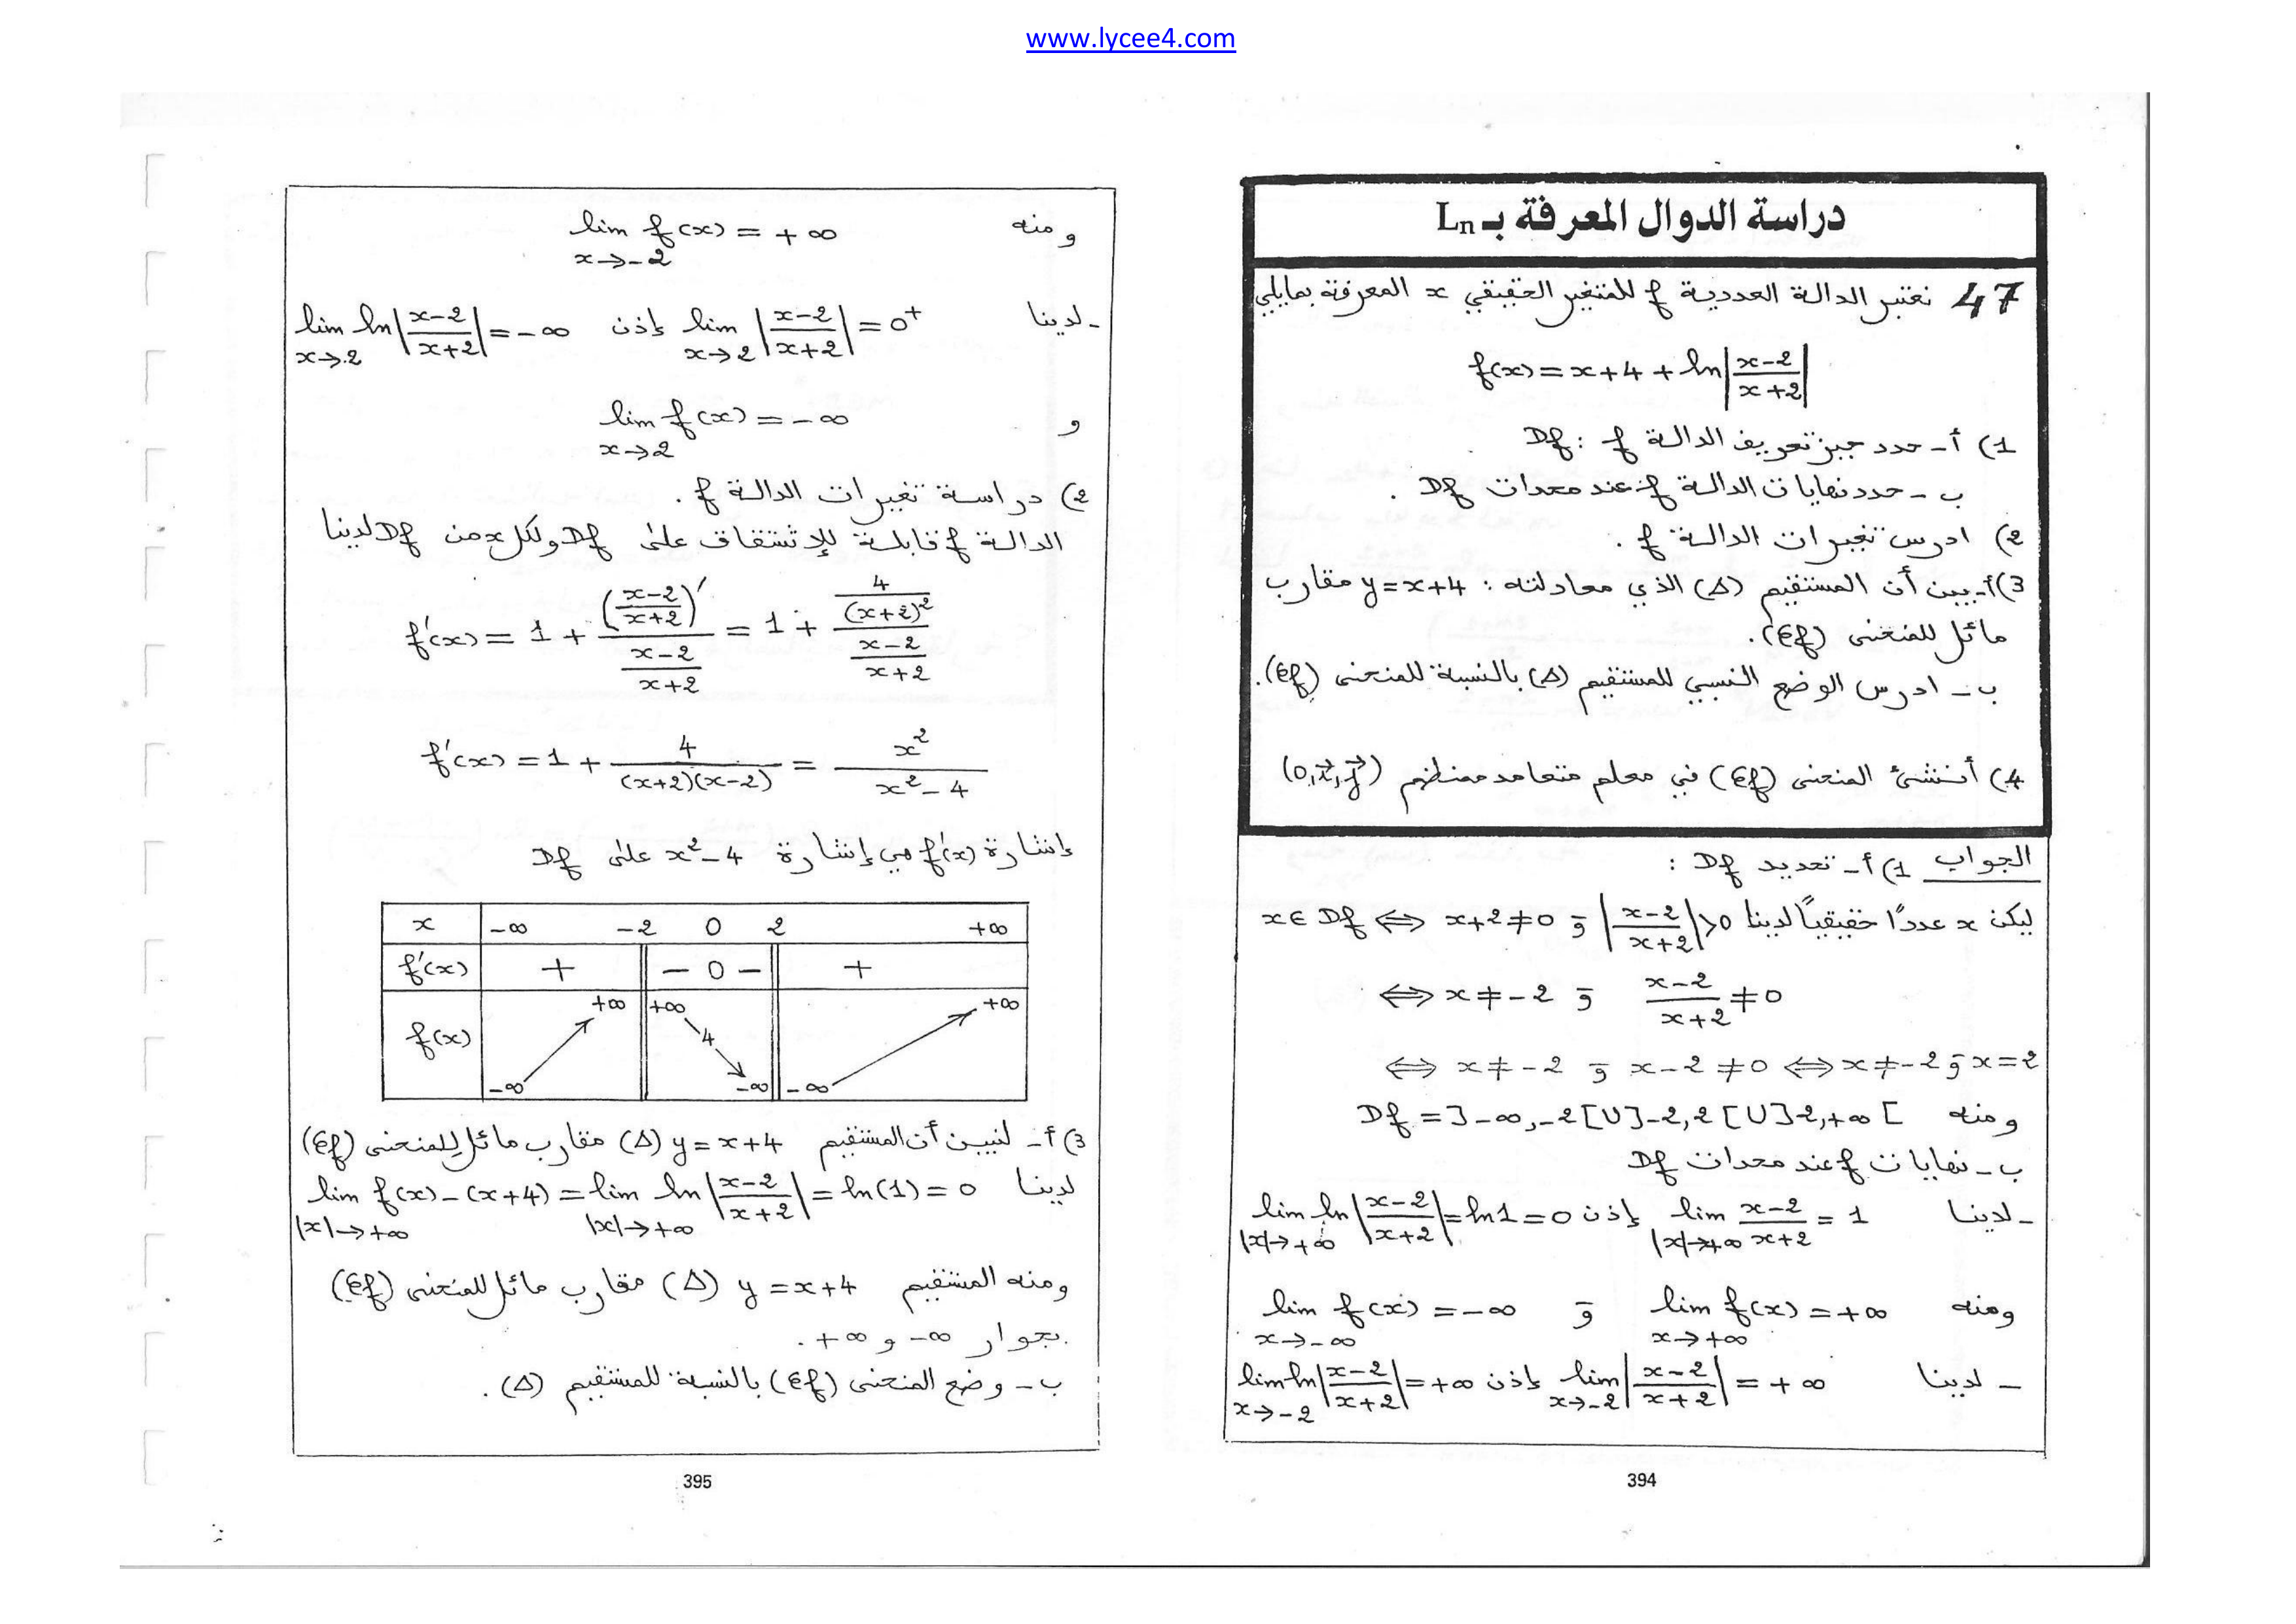 www.lycee4.com
دراسة الدوال المعرفة بـ Ln
47 نعتبر الدالة العددية f للمتغير الحقيقي x المعرفة بمايلي
f(x) = x+4 + ln|(x-2)/(x+2)|
1) أ- حدد حيز تعريف الدالة f : Df
ب- حدد نهايات الدالة f عند محدات Df .
2) ادرس تغيرات الدالة f .
3) أ- بين أن المستقيم (Δ) الذي معادلته : y=x+4 مقارب
مائل للمنحنى (Cf).
ب- ادرس الوضع النسبي للمستقيم (Δ) بالنسبة للمنحنى (Cf).
4) أنشئ المنحنى (Cf) في معلم متعامد ممنظم (O,i⃗,j⃗)
الجواب 1) أ- تحديد Df :
ليكن x عددًا حقيقياً لدينا x∈Df ⇔ x+2≠0 و |(x-2)/(x+2)|>0
⇔ x≠-2 و (x-2)/(x+2) ≠ 0
⇔ x≠-2 و x-2≠0 ⇔ x≠-2 و x=2
ومنه Df = ]-∞,-2[U]-2,2[U]2,+∞[
ب- نهايات f عند محدات Df
- لدينا lim |x|→+∞ (x-2)/(x+2) = 1 إذن lim |x|→+∞ ln|(x-2)/(x+2)| = ln1 = 0
ومنه lim x→+∞ f(x) = +∞ و lim x→-∞ f(x) = -∞
- لدينا lim x→-2 |(x-2)/(x+2)| = +∞ إذن lim x→-2 ln|(x-2)/(x+2)| = +∞
394
ومنه lim x→-2 f(x) = +∞
- لدينا lim x→2 |(x-2)/(x+2)| = 0⁺ إذن lim x→2 ln|(x-2)/(x+2)| = -∞
و lim x→2 f(x) = -∞
2) دراسة تغيرات الدالة f .
الدالة f قابلة للإشتقاق على Df ولكل x من Df لدينا
f'(x) = 1 + ((x-2)/(x+2))' / ((x-2)/(x+2)) = 1 + (4/(x+2)²) / ((x-2)/(x+2))
f'(x) = 1 + 4/((x+2)(x-2)) = x²/(x²-4)
إشارة f'(x) هي إشارة x²-4 على Df
x -∞ -2 0 2 +∞
f'(x) + - 0 - +
f(x) -∞ +∞ +∞ 4 -∞ -∞ +∞
3) أ- لنبين أن المستقيم (Δ) y=x+4 مقارب مائل للمنحنى (Cf)
لدينا lim |x|→+∞ f(x)-(x+4) = lim |x|→+∞ ln|(x-2)/(x+2)| = ln(1) = 0
ومنه المستقيم (Δ) y=x+4 مقارب مائل للمنحنى (Cf)
بجوار -∞ و +∞ .
ب- وضع المنحنى (Cf) بالنسبة للمستقيم (Δ) .
395